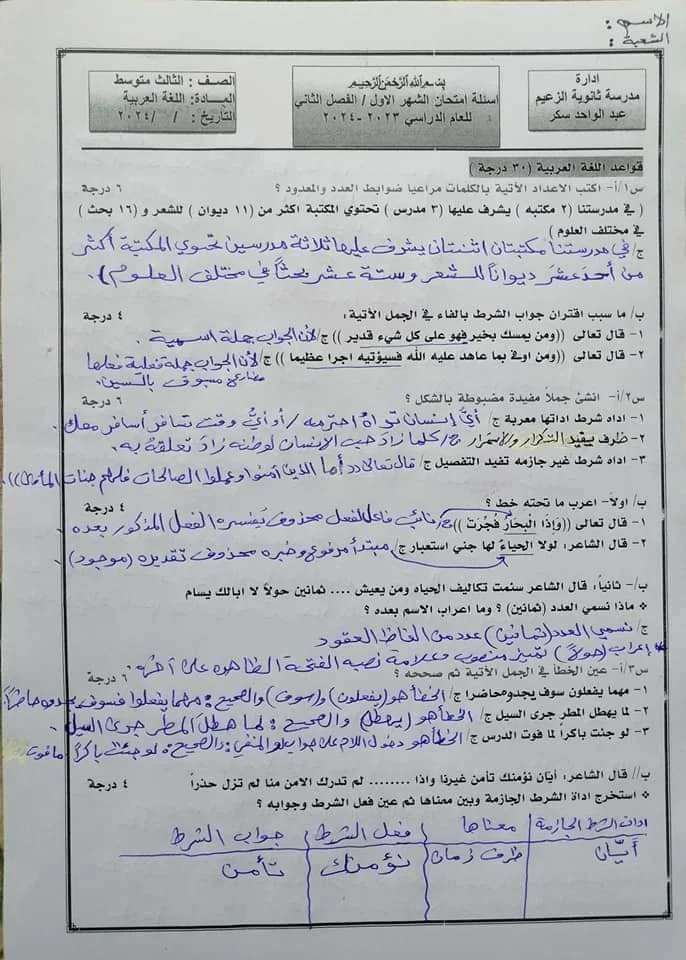 الاسم :
الشعبة :
ادارة
مدرسة ثانوية الزعيم
عبد الواحد سكر
بسم الله الرحمن الرحيم
اسئلة امتحان الشهر الاول / الفصل الثاني
للعام الدراسي ٢٠٢٣ -٢٠٢٤
الصف : الثالث متوسط
المادة: اللغة العربية
التاريخ : / /٢٠٢٤
قواعد اللغة العربية (٣٠ درجة )
س١/أ- اكتب الاعداد الأتية بالكلمات مراعيا ضوابط العدد والمعدود ؟ ٦ درجة
( في مدرستنا (٢ مكتبه ) يشرف عليها (٣ مدرس ) تحتوي المكتبة اكثر من (١١ ديوان ) للشعر و (١٦ بحث )
في مختلف العلوم )
ج/ في مدرستنا مكتبتان اثنتان يشرف عليها ثلاثة مدرسين تحتوي المكتبة أكثر
من أحد عشر ديواناً للشعر وستة عشر بحثاً في مختلف العلوم ) .
ب/ ما سبب اقتران جواب الشرط بالفاء في الجمل الأتية: ٤ درجة
١- قال تعالى ((ومن يمسك بخير فهو على كل شيء قدير )) ج/ لأن الجواب جملة اسمية .
٢- قال تعالى ((ومن اوفى بما عاهد عليه الله فسيؤتيه اجرا عظيما )) ج/ لأن الجواب جملة فعلية فعلها
مضارع مسبوق بالسين.
س٢/أ- انشئ جملاً مفيدة مضبوطة بالشكل ؟ ٦ درجة
١- اداه شرط اداتها معربة ج/ أيُّ إنسان تراهُ احترمه / أو أيُّ وقت تسافر أسافر معك.
٢- ظرف يفيد التكرار والاستمرار ج/ كلما زادَ حب الإنسان لوطنه زادَ تعلقهُ به .
٣- اداه شرط غير جازمه تفيد التفصيل ج/ قال تعالى (( أما الذين آمنوا وعملوا الصالحات فلهم جنات المأوى )).
ب/ اولاً- اعرب ما تحته خط ؟ ٤ درجة
١- قال تعالى ((وَإِذَا الْبِحَارُ فُجِّرَتْ )) ج/ نائب فاعل لفعل محذوف يفسره الفعل المذكور بعده .
٢- قال الشاعر: لولا الحياءُ لها جني استعبار ج/ مبتدأ مرفوع وخبره محذوف تقديره (موجود)
ب/- ثانياً، قال الشاعر سئمت تكاليف الحياه ومن يعيش .... ثمانين حولاً لا ابالك يسام
❖ ماذا نسمي العدد (ثمانين) ؟ وما اعراب الاسم بعده ؟
ج/ نسمي العدد (ثمانين) عدد من الفاظ العقود
* إعراب (حولاً) تمييز منصوب وعلامة نصبه الفتحة الظاهره على آخره.
س٣/أ- عين الخطأ في الجمل الأتية ثم صححه ؟ ٦ درجة
١- مهما يفعلون سوف يجدو محاضرا ج/ الخطأ هو (يفعلون) و(سوف) والصحيح : مهما يفعلوا فسوف يجدوه حاضراً
٢- لما يهطل المطر جرى السيل ج/ الخطأ هو (يهطل) والصحيح : لما هطل المطر جرى السيل .
٣- لو جئت باكراً لما فوت الدرس ج/ الخطأ هو دخول اللام على جواب لو المنفي : والصحيح: لو جئت باكراً ما فوت
ب// قال الشاعر: أيّان نؤمنك تأمن غيرنا واذا ........ لم تدرك الامن منا لم تزل حذراً ٤ درجة
❖ استخرج اداة الشرط الجازمة وبين معناها ثم عين فعل الشرط وجوابه ؟
اداة الشرط الجازمة معناها فعل الشرط جواب الشرط
أيّان ظرف زمان نؤمنك تأمن